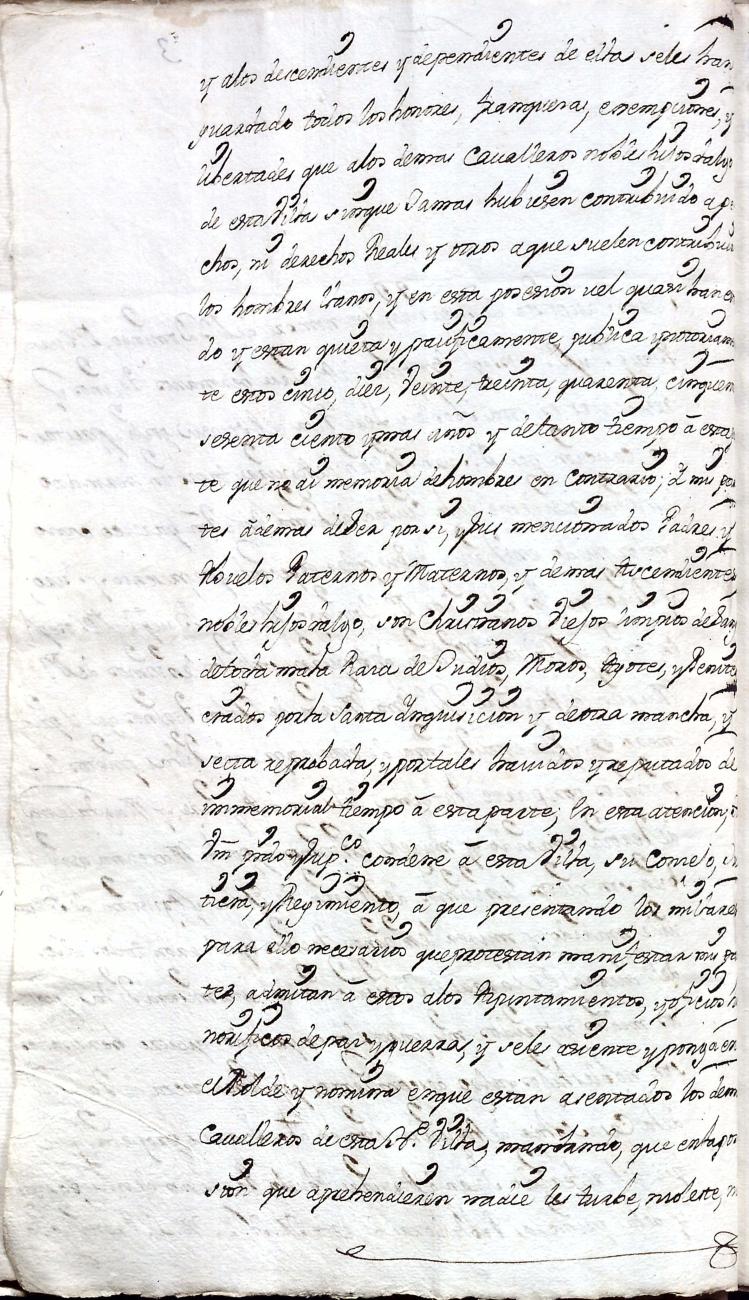 y alos descendientes y dependientes de ella seles han
guardado todos los honores, franquezas, exempciones, y
libertades que alos demas Cavalleros nobles hijos dalgo
de esta Villa sinque Jamas hubiesen contribuido a pe
chos, ni derechos Reales y otros aque suelen contribuir
los hombres llanos, y en esta posesion vel quasi han es
do y estan quieta y pacificamente, publica y notoriam
te estos cinco, diez, Veinte, treinta, quarenta, cinquen
sesenta ciento y mas años y de tanto tiempo â esta
te que no ai memoria de hombres en contrario; Y mis par
tes âdemas de Ser por si, y sus mencionados Padres y
Abuelos Paternos y Maternos, y demas Ascendientes
nobles hijos dalgo, son Christianos Viejos limpios de Sang
de toda mala Raza de Judios, Moros, Agotes, y Penite
ciados por la Santa Inquisicion y de otra mancha, y
secta reprobada, y por tales havidos y reputados de
immemorial tiempo â esta parte; En esta atencion,
Vm pido y sup.co condene â esta Villa, su Concejo,
ticia, y Regimiento, â que presentando los milares
para ello necesarios que protestan manifestar mis par
tes, admitan â estos alos Ayuntamientos, y oficios h
norificos de paz y guerra, y seles asiente y ponga en
el Rolde y nomina enque estan asentados los dem
Cavalleros de esta N.e Villa, mandando, que en la pos
sion que aprehendieren nadie les turbe, moleste, n